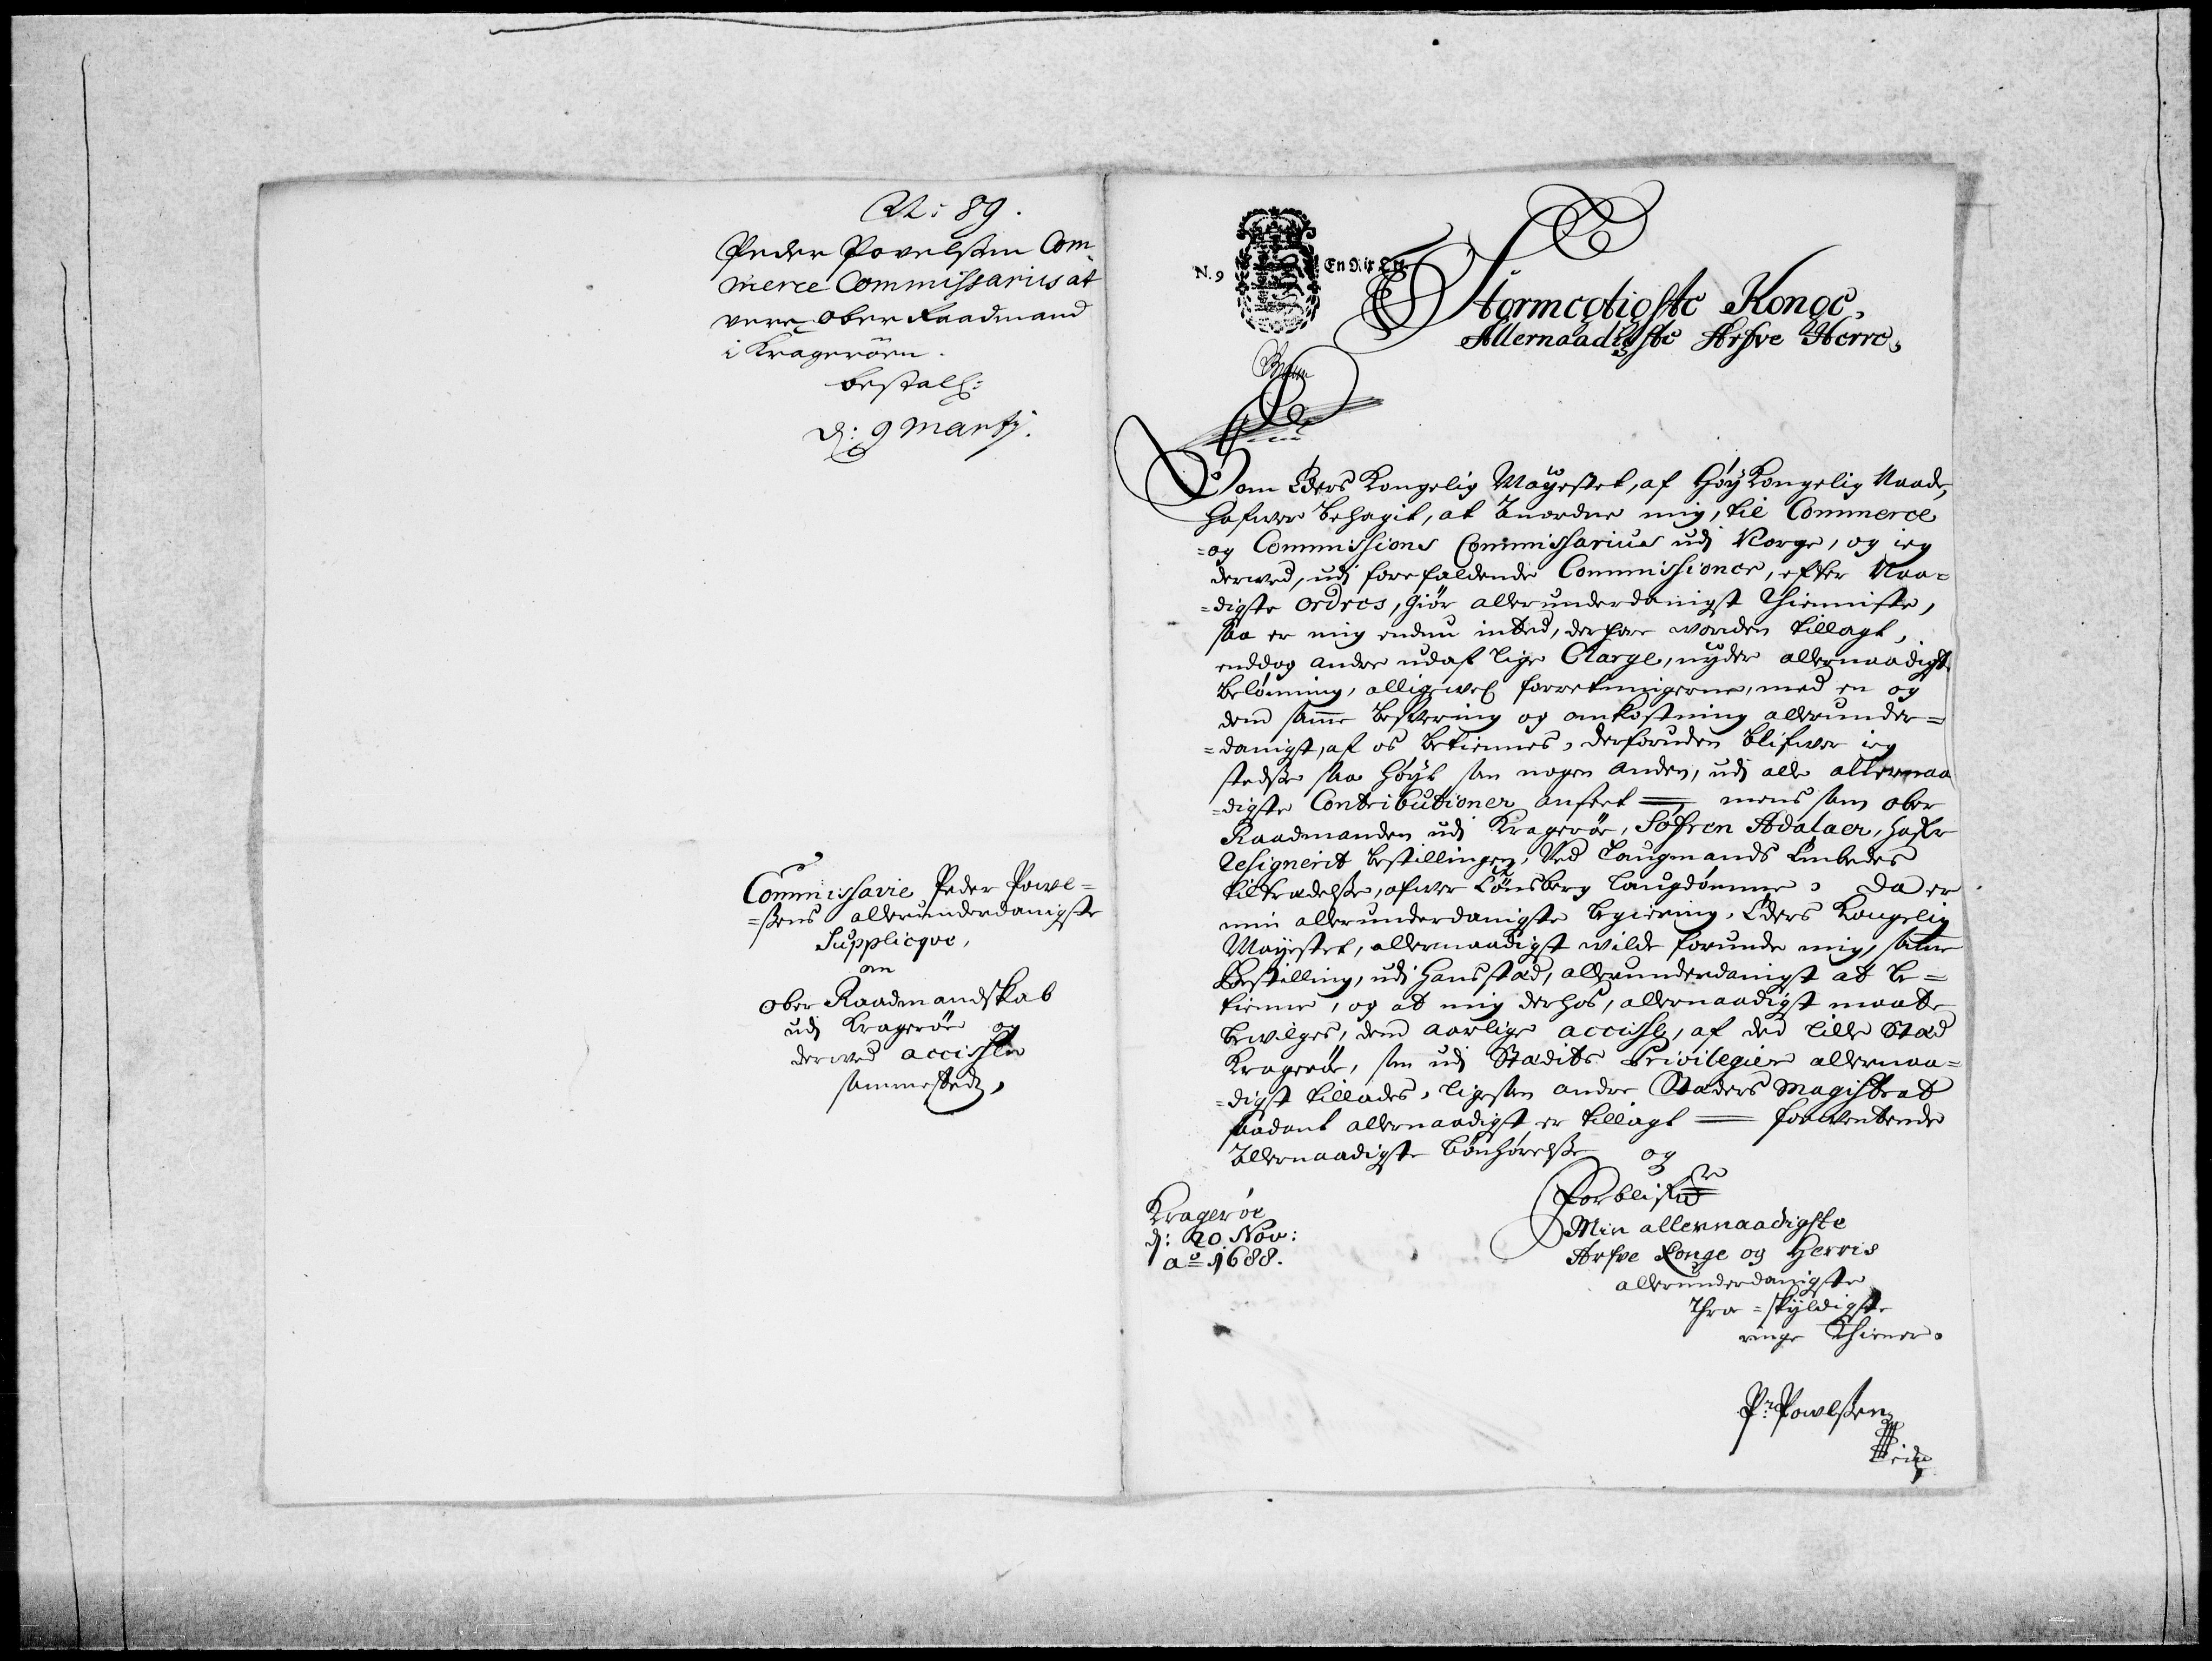 89.
Peder Povelssen Com
merce Commissarius at
vere Ober Raadmand
i Kragerøen.
bestall:
d: 9 Martij.
Commissarie Peder Powel=
=sens allerunderdanigste
Supplicqve,
om
ober Raadmandskab
udj Kragerøe og
derved accissen
sammestedz,
N. 9 En Rix Ort
Stormegtigste Konge,
Allernaadigste Arfve Herre,
Som Eders Kongelig Mayestet, af Høy Kongelig Naade,
hafver behagit, at anordne mig, til Commerce
=og Commissions Commissarius udj Norge, og ieg
derved, udj forefaldende Commissioner, efter Naa=
=digste ordres, giør allerunderdanigst thienniste,
saa er mig endnu inted, derfore worden tillagt,
enddog andre udaf lige Charge, nyder allernaadigst
belønning, alligevel forretningerne, med en og
dend samme besværing og omkostning allerunder=
=danigst, af os betiennes, derforuden blifver ieg
stedse saa høyt som nogen anden, udj alle allernaa
=digste Contributioner anseet = mens som ober
Raadmanden udj Kragerøe, Søfren Adalaer, hafr
resignerit bestillingen, ved Laugmands Embedes
tiltrædelse, ofver Tønsberg Laugdømme, Da er
min allerunderdanigste begiering, Eders Kongelig
Mayestet, allernaadigst wilde forunde mig, samme
Bestilling, udj hans stæd, allerunderdanigst at be=
tienne, og at mig derhos, allernaadigst maatte
bevilges, dend aarlige accise, af ded lille Stad
Kragerøe, som udj Stadits Privilegier allernaa=
=digst tillades, ligesom andre Stæders Magistrat
saadant allernaadigst er tillagt = forventende
allernaadigste bønhørelse og
forblifver
Min allernaadigste
Arfve Konge og Herris
allerunderdanigste
Troe=skyldigste
ringe Thiener.
Kragerøe
d: 20 Nov:
aō 1688.
Pr: Powelssen